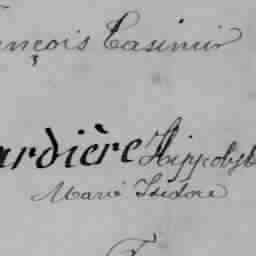 ençois Casimir
ardière Hippolyt
Marie Isidore